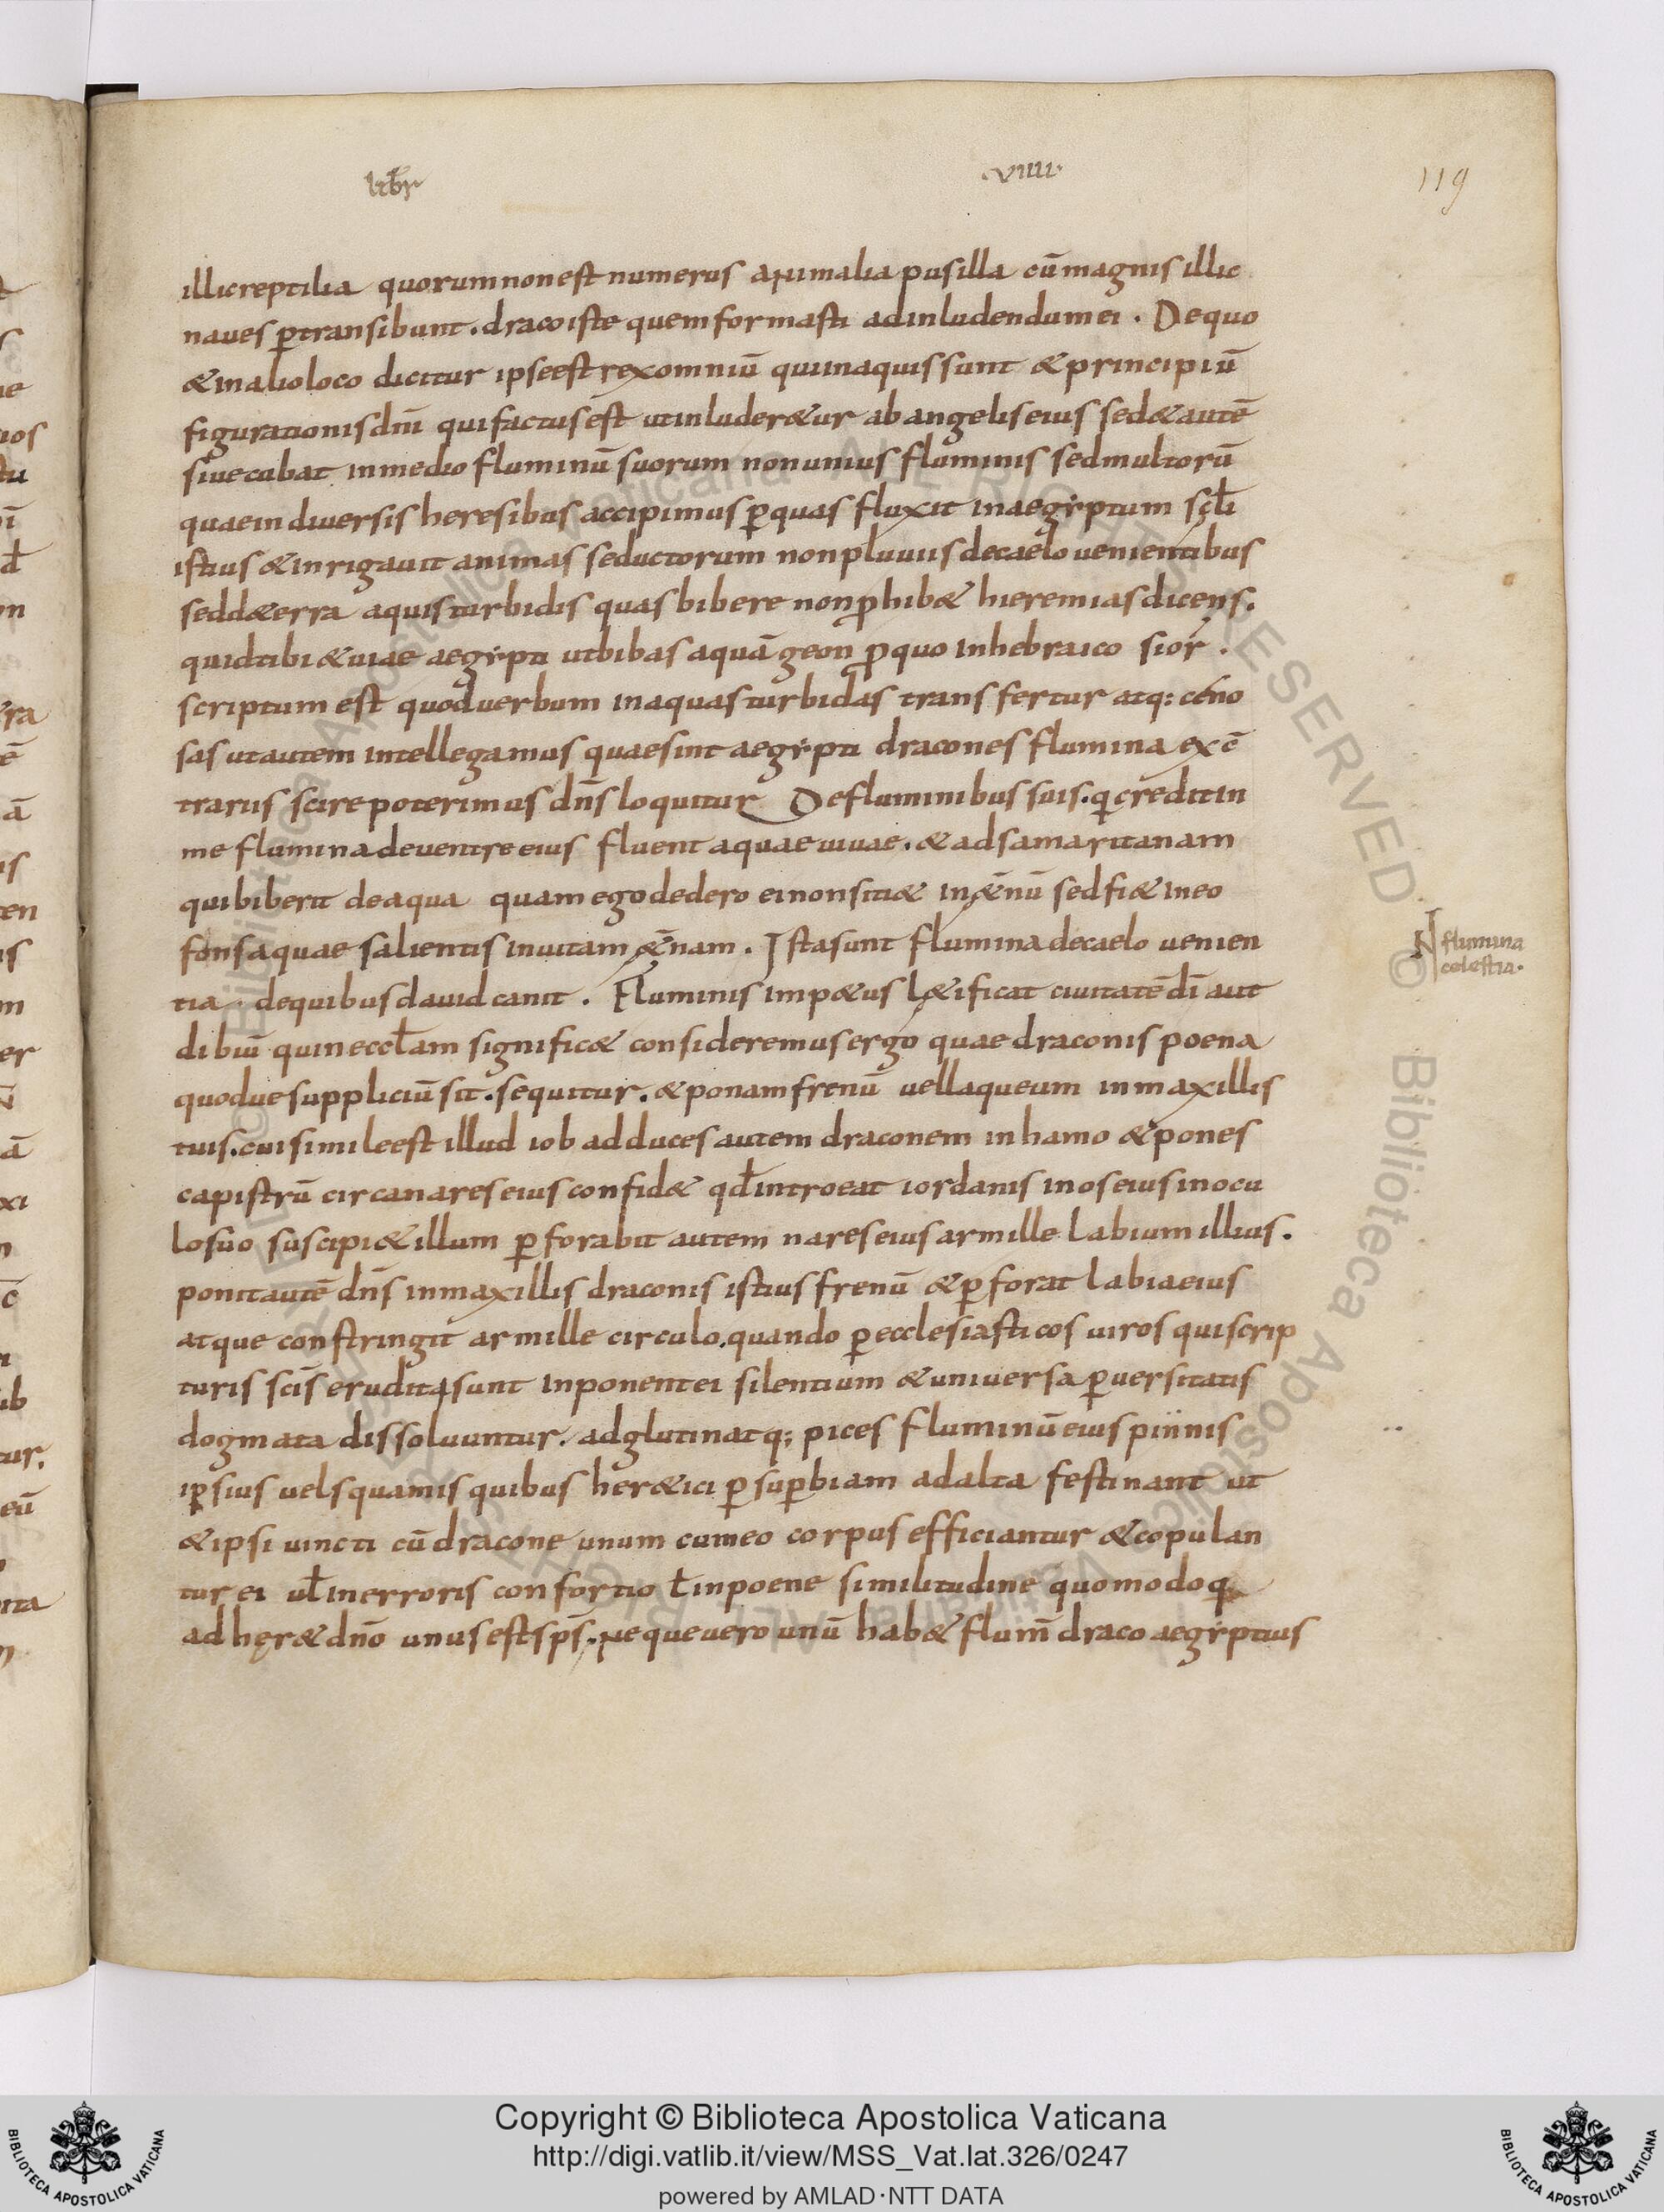 libr viiii·
119
illic reptilia quorum non est numerus animalia pusilla cū magnis illic
naues ꝑtransibunt . draco iste quem formasti ad inludendum ei . De quo
& in alio loco dicitur ipse est rex omniū qui in aquis sunt & principiū
figurationis dn̄i qui factus est ut inluder&ur ab angelis eius sed & autē
siue cubat in medio fluminū suorum non unius fluminis sed multorū
quae in diuersis heresibus accipimus ꝑ quas fluxit in aegyptum sc̄li
istius & inrigauit animas seductorum non pluuiis de caelo uenientibus
sed d& erra aquis turbidis quas bibere non ꝓhib& hieremias dicens.
quid tibi & uiae aegypti ut bibas aquā geon ꝓ quo in hebraico sior .
scriptum est quod uerbum in aquas turbidas transfertur atq: céno
sas ut autem intellegamus quae sint aegypti dracones flumina ex c̄
trariis scire poterimus dn̄s loquitur De fluminibus suis. q credit in
me flumina de uentre eius fluent aquae uiuae . & ad samaritanam
qui biberit de aqua quam ego dedero ei non siti& in &̄nū sed fi& in eo
fons aquae salientis in uitam &̄nam . Ista sunt flumina de caelo uenien
tia · de quibus dauid canit . Fluminis imp&us l&ificat ciuitatē dī aut
dibiū quin eccłam signific& consideremus ergo quae draconis poena
quodue suppliciū sit . sequitur . & ponam frenū uel laqueum in maxillis
tuis. cui simile est illud iob adduces autem draconem in hamo & pones
capistrū circa nares eius confid& qđ introeat iordanis in os eius in ocu
lo suo suscipi& illum ꝑforabit autem nares eius armille labium illius .
ponit autē dn̄s in maxillis draconis istius frenū & ꝑforat labia eius
atque constringit armille circulo. quando ꝑ ecclesiasticos uiros qui scrip
turis sc̄is eruditi sunt inponent ei silentium & uniuersa ꝑuersitatis
dogmata dissoluuntur . adglutinatq; pices fluminū eius pinnis
ipsius uel squamis quibus her&ici ꝑ suꝑbiam ad alta festinant ut
& ipsi uincti cū dracone unum cum eo corpus efficiantur & copulan
tur ei uł in erroris consortio ł in poene similitudine quomodo q
adher& dn̄o unus est sp̄s. neque uero unū hab& flum̄ draco aegyptius
N flumina
celestia·
Copyright © Biblioteca Apostolica Vaticana
http://digi.vatlib.it/view/MSS_Vat.lat.326/0247
powered by AMLAD·NTT DATA
BIBLIOTECA APOSTOLICA VATICANA
BIBLIOTECA APOSTOLICA VATICANA